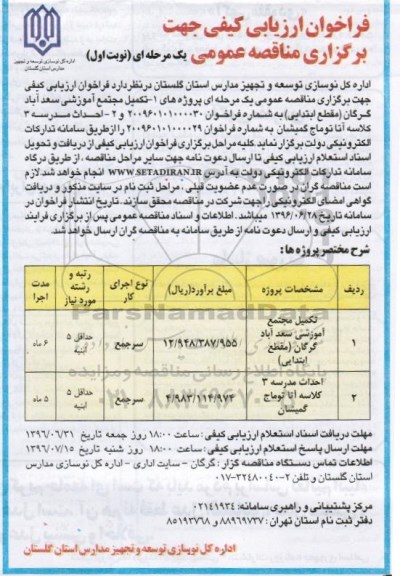 فراخوان ارزیابی کیفی جهت
برگزاری مناقصه عمومی یک مرحله ای (نوبت اول)
اداره کل نوسازی توسعه و تجهیز
مدارس استان گلستان
اداره کل نوسازی توسعه و تجهیز مدارس استان گلستان درنظردارد فراخوان ارزیابی کیفی
جهت برگزاری مناقصه عمومی یک مرحله ای پروژه های ۱-تکمیل مجتمع آموزشی سعد آباد
گرگان (مقطع ابتدایی) به شماره فراخوان ۲۰۰۹۶۰۱۰۱۰۰۰۰۳۰ و ۲-احداث مدرسه ۳
کلاسه آتا توماج گمیشان به شماره فراخوان ۲۰۰۹۶۰۱۰۱۰۰۰۰۲۹ را ازطریق سامانه تدارکات
الکترونیکی دولت برگزار نماید کلیه مراحل برگزاری فراخوان ارزیابی کیفی از دریافت و تحویل
اسناد استعلام ارزیابی کیفی تا ارسال دعوت نامه جهت سایر مراحل مناقصه ، از طریق درگاه
سامانه تدارکات الکترونیکی دولت به آدرس WWW.SETADIRAN.IR انجام خواهد شد.لازم
است مناقصه گران در صورت عدم عضویت قبلی ، مراحل ثبت نام در سایت مذکور و دریافت
گواهی امضای الکترونیکی را جهت شرکت در مناقصه محقق سازند. تاریخ انتشار فراخوان در
سامانه تاریخ ۱۳۹۶/۰۶/۲۸ میباشد. اطلاعات و اسناد مناقصه عمومی پس از برگزاری فرایند
ارزیابی کیفی و ارسال دعوت نامه از طریق سامانه به مناقصه گران ارسال خواهد شد.
شرح مختصر پروژه ها :
ردیف مشخصات پروژه مبلغ برآورد(ریال) نوع اجرای کار رتبه و رشته مورد نیاز مدت اجرا
۱ تکمیل مجتمع آموزشی سعد آباد گرگان (مقطع ابتدایی) ۱۲/۹۴۸/۳۸۷/۹۵۵ سرجمع حداقل ۵ ابنیه ۶ ماه
۲ احداث مدرسه ۳ کلاسه آتا توماج گمیشان ۴/۹۸۳/۱۱۴/۹۷۴ سرجمع حداقل ۵ ابنیه ۵ ماه
مهلت دریافت اسناد استعلام ارزیابی کیفی : ساعت ۱۸:۰۰ روز جمعه تاریخ ۱۳۹۶/۰۶/۳۱
مهلت ارسال پاسخ استعلام ارزیابی کیفی: ساعت ۱۸:۰۰ روز شنبه تاریخ ۱۳۹۶/۰۷/۱۵
اطلاعات تماس دستگاه مناقصه گزار : گرگان - سایت اداری - اداره کل نوسازی مدارس
استان گلستان و تلفن ۲-۳۲۴۸۰۰۴۰-۰۱۷
مرکز پشتیبانی و راهبری سامانه: ۰۲۱۴۱۹۳۴
دفتر ثبت نام استان تهران : ۸۸۹۶۹۷۳۷ و ۸۵۱۹۳۷۶۸
اداره کل نوسازی توسعه و تجهیز مدارس استان گلستان